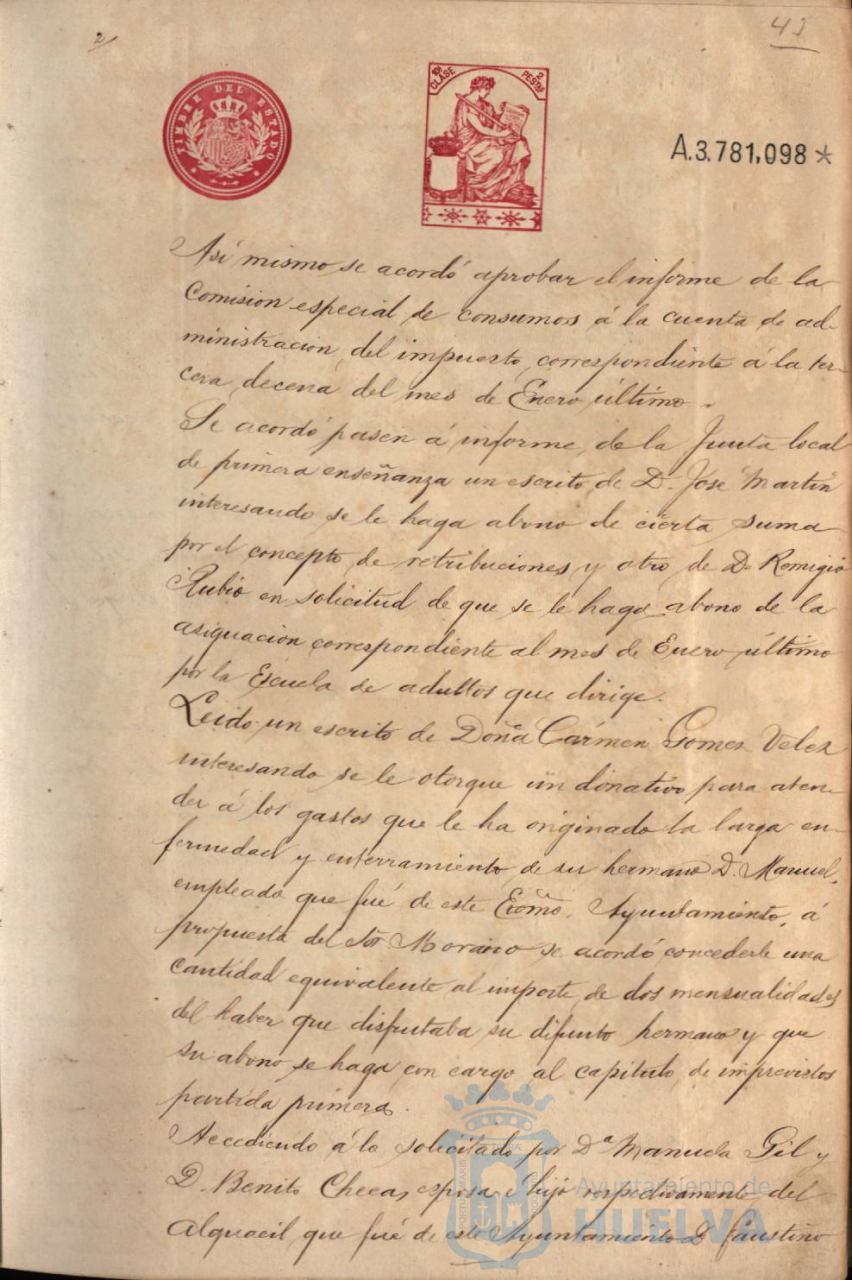 2
43
TIMBRE DEL ESTADO
10ª CLASE
2 PESTAS
A.3.781,098*
Así mismo se acordó aprobar el informe de la
Comision especial de consumos á la cuenta de ad-
ministracion del impuesto, correspondiente á la ter-
cera decena del mes de Enero último.
Se acordó pasen á informe de la Junta local
de primera enseñanza un escrito de D. José Martin
interesando se le haga abono de cierta suma
por el concepto de retribuciones y otro de Dn Remigio
Rubio en solicitud de que se le haga abono de la
asignacion correspondiente al mes de Enero último
por la Escuela de adultos que dirige.
Leido un escrito de Doña Cármen Gomez Velez
interesando se le otorgue un donativo para aten-
der á los gastos que le ha originado la larga en-
fermedad y enterramiento de su hermano D. Manuel,
empleado que fué de este Excmo. Ayuntamiento, á
propuesta del Sor Morano se acordó concederle una
cantidad equivalente al importe de dos mensualidades
del haber que disfrutaba su difunto hermano y que
su abono se haga con cargo al capitulo de imprevistos
partida primera.
Accediendo á lo solicitado por Dª Manuela Gil y
D. Benito Checa, esposa é hijo respectivamente del
Alguacil que fué de este Ayuntamiento D. Faustino
Ayuntamiento de
HUELVA